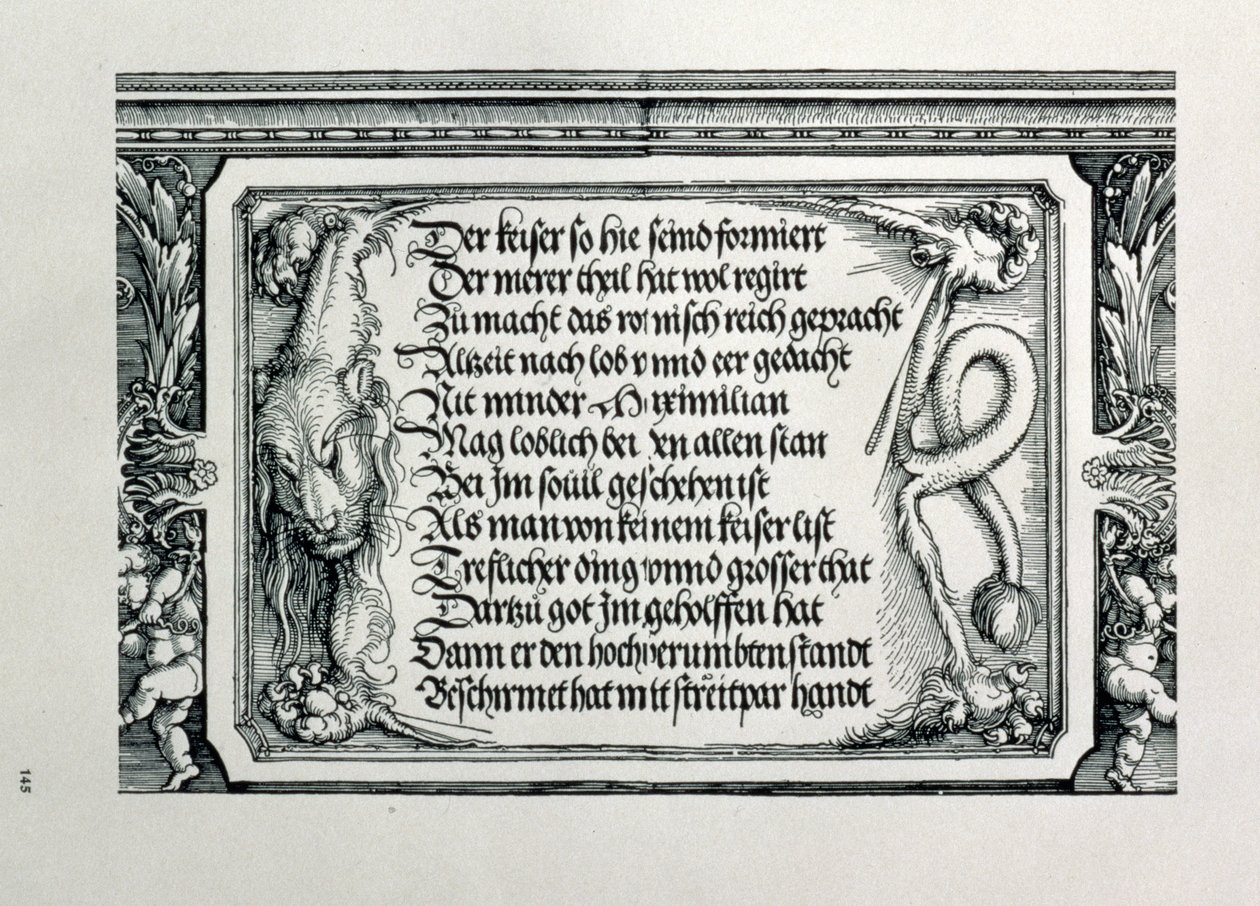 Der keiser so hie seind formiert
Der merer theil hat wol regirt
Zu macht das romisch reich gepracht
Altzeit nach lob vnnd eer gedacht
Nit minder Maximilian
Mag loblich bei den allen stan
Bei Im souil geschehen ist
Als man von keinem keiser list
Treflicher ding vnnd grosser that
Dartzů got Im geholffen hat
Dann er den hochverumbten standt
Beschirmet hat mit streitpar handt
145